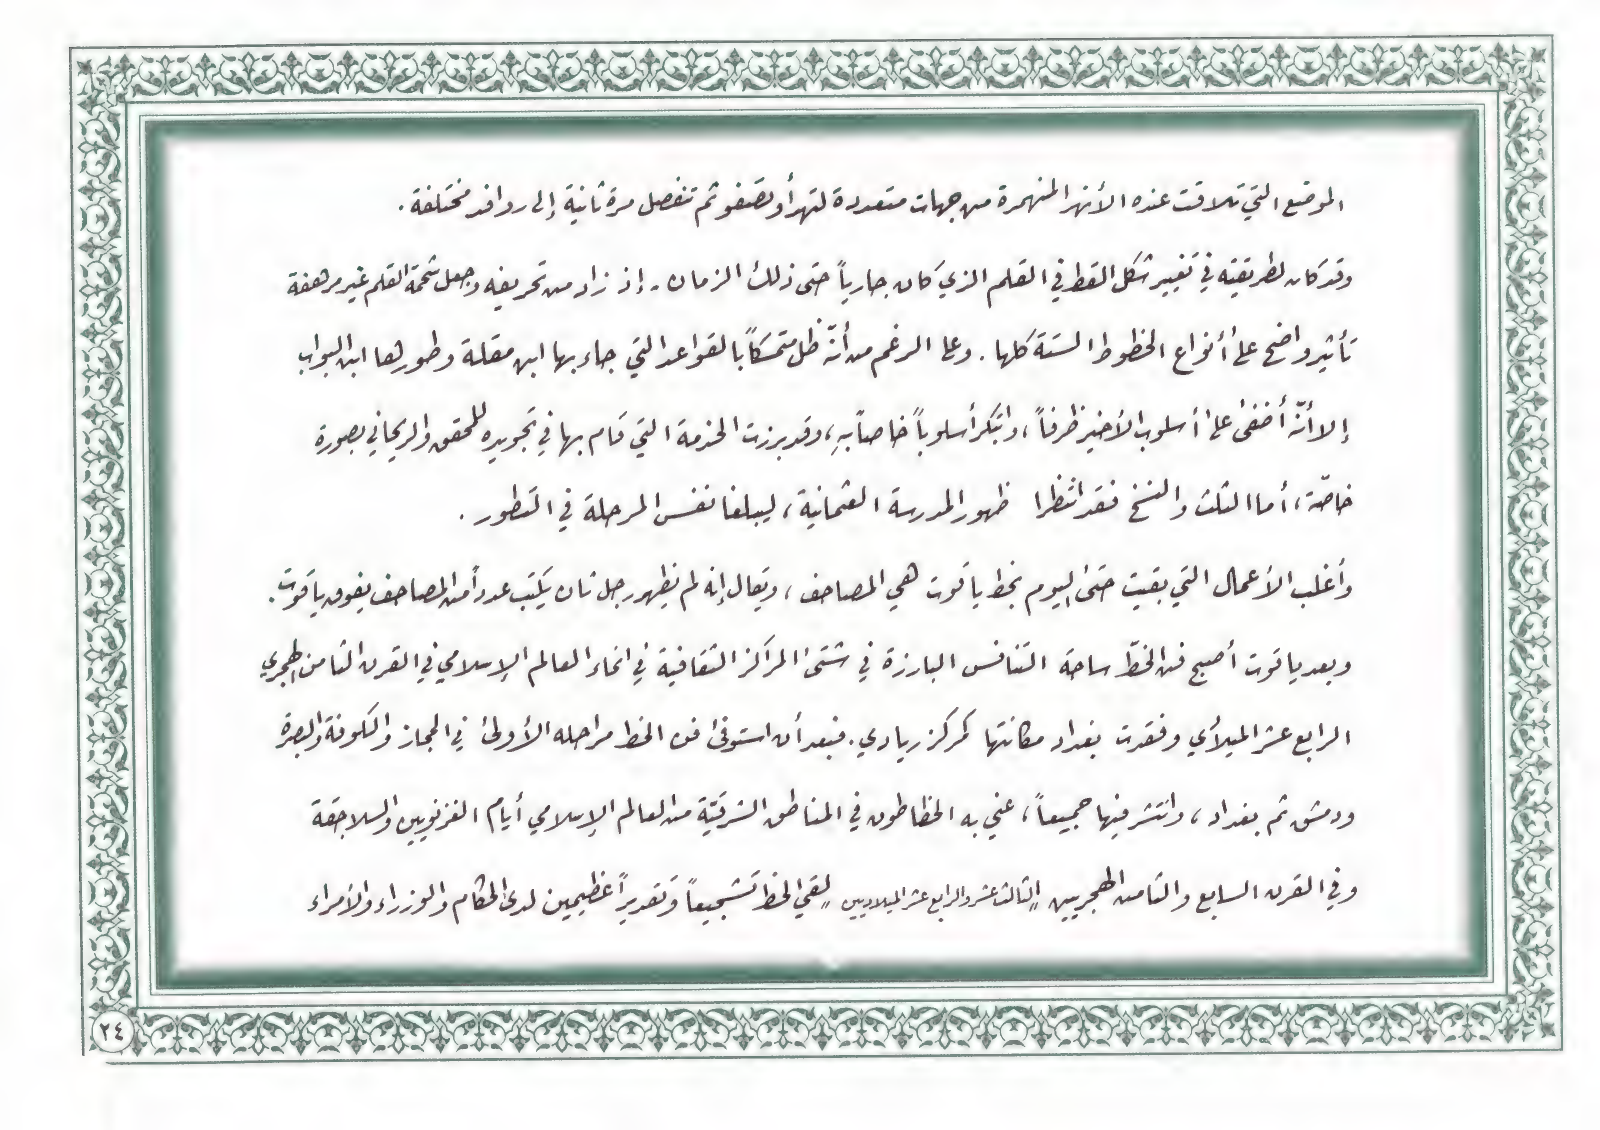 الموضع التي تلاقت عنده الأنهر المنهمرة من جهات متعددة لتهدأ وتصفو ثم تنفصل مرة ثانية إلى روافد مختلفة .
وقد كان لطريقته في تغيير شكل القط في القلم الذي كان جارياً حتى ذلك الزمان - إذ زاد من تحريفه وجعل شحمة القلم غير مرهفة
تأثير واضح على أنواع الخطوط الستة كلها . وعلى الرغم من أنّه ظل متمسكاً بالقواعد التي جاء بها ابن مقلة وطورها ابن البواب
إلا أنّه أضفى على أسلوب الأخير ظرفاً ، وابتكر أسلوباً خاصاً به ، وقد برزت الخدمة التي قام بها في تجويده للمحقق والريحاني بصورة
خاصّة ، أما الثلث والنسخ فقد انتظرا ظهور المدرسة العثمانية ، ليبلغا نفس المرحلة في التطور .
وأغلب الأعمال التي بقيت حتى اليوم بخط ياقوت هي المصاحف ، ويقال إنه لم يظهر رجل ثان يكتب عدداً من المصاحف يفوق ياقوت .
وبعد ياقوت أصبح فن الخطّ ساحة التنافس البارزة في شتى المراكز الثقافية في انحاء العالم الإسلامي في القرن الثامن الهجري
الرابع عشر الميلادي وفقدت بغداد مكانتها كمركز ريادي . فبعد أن استوفى فن الخط مراحله الأولى في الحجاز والكوفة والبصرة
ودمشق ثم بغداد ، وانتشر فيها جميعاً ، عني به الخطاطون في المناطق الشرقيّة من العالم الإسلامي أيام الغزنويين والسلاجقة
وفي القرن السابع والثامن الهجريين "الثالث عشر والرابع عشر الميلاديين" لقي الخط تشجيعاً وتقديراً عظيمين لدى الحكام والوزراء والأمراء
٢٤